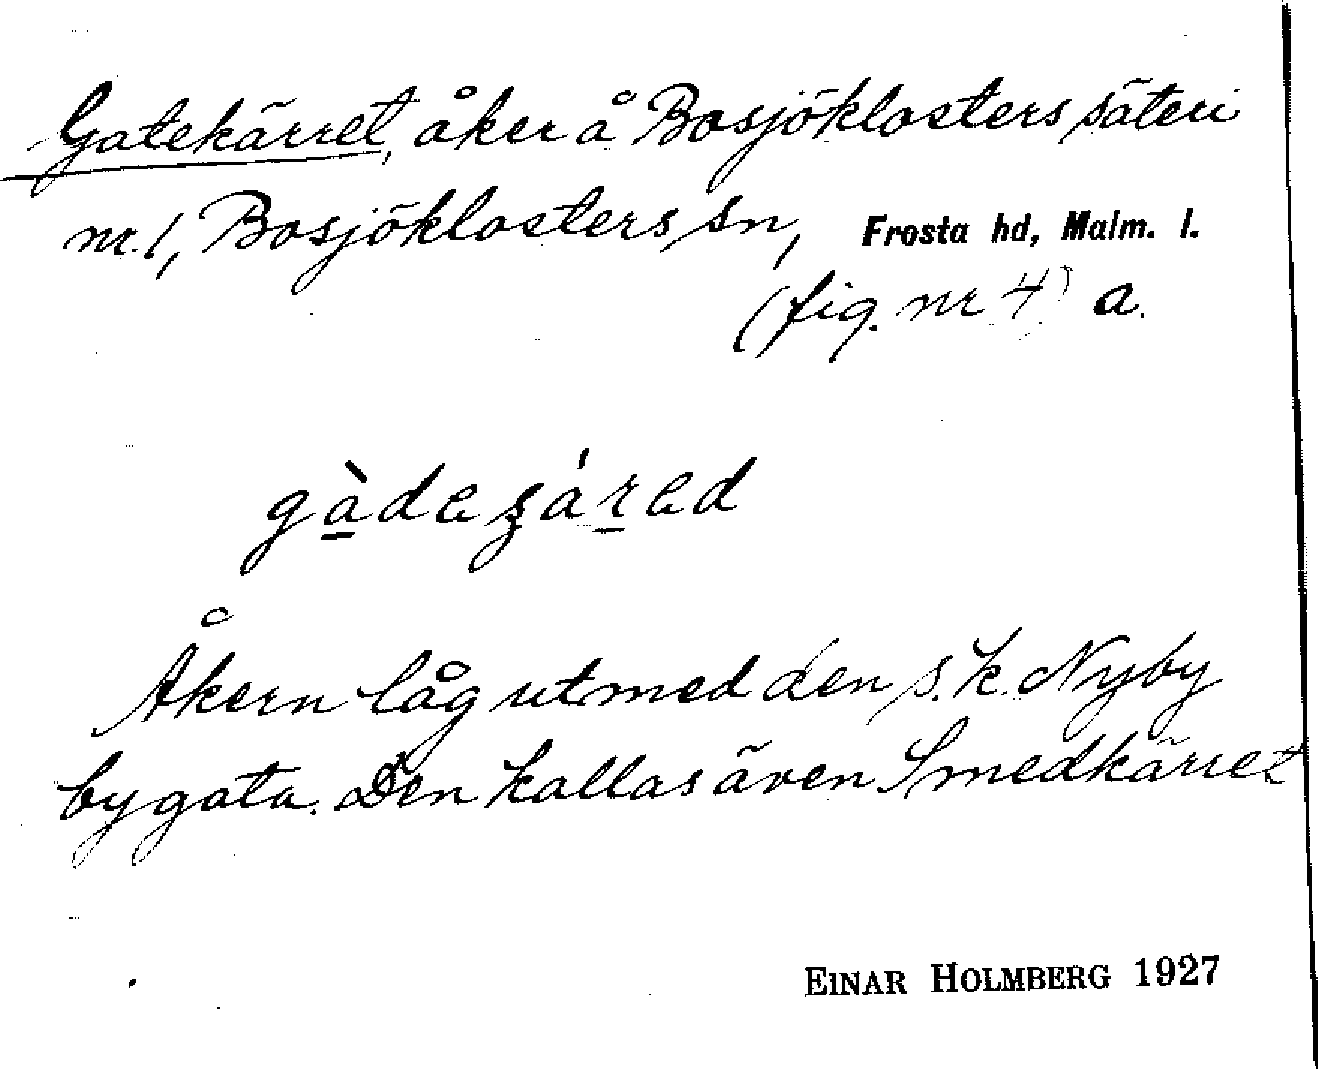 Gatekärret, åker å Bosjöklosters säteri
nr. 1, Bosjöklosters sn, Frosta hd, Malm. l.
(fig. nr 4) a.
Åkern låg utmed den s. k. Nyby
bygata. Den kallas även Smedkärret
EINAR HOLMBERG 1927